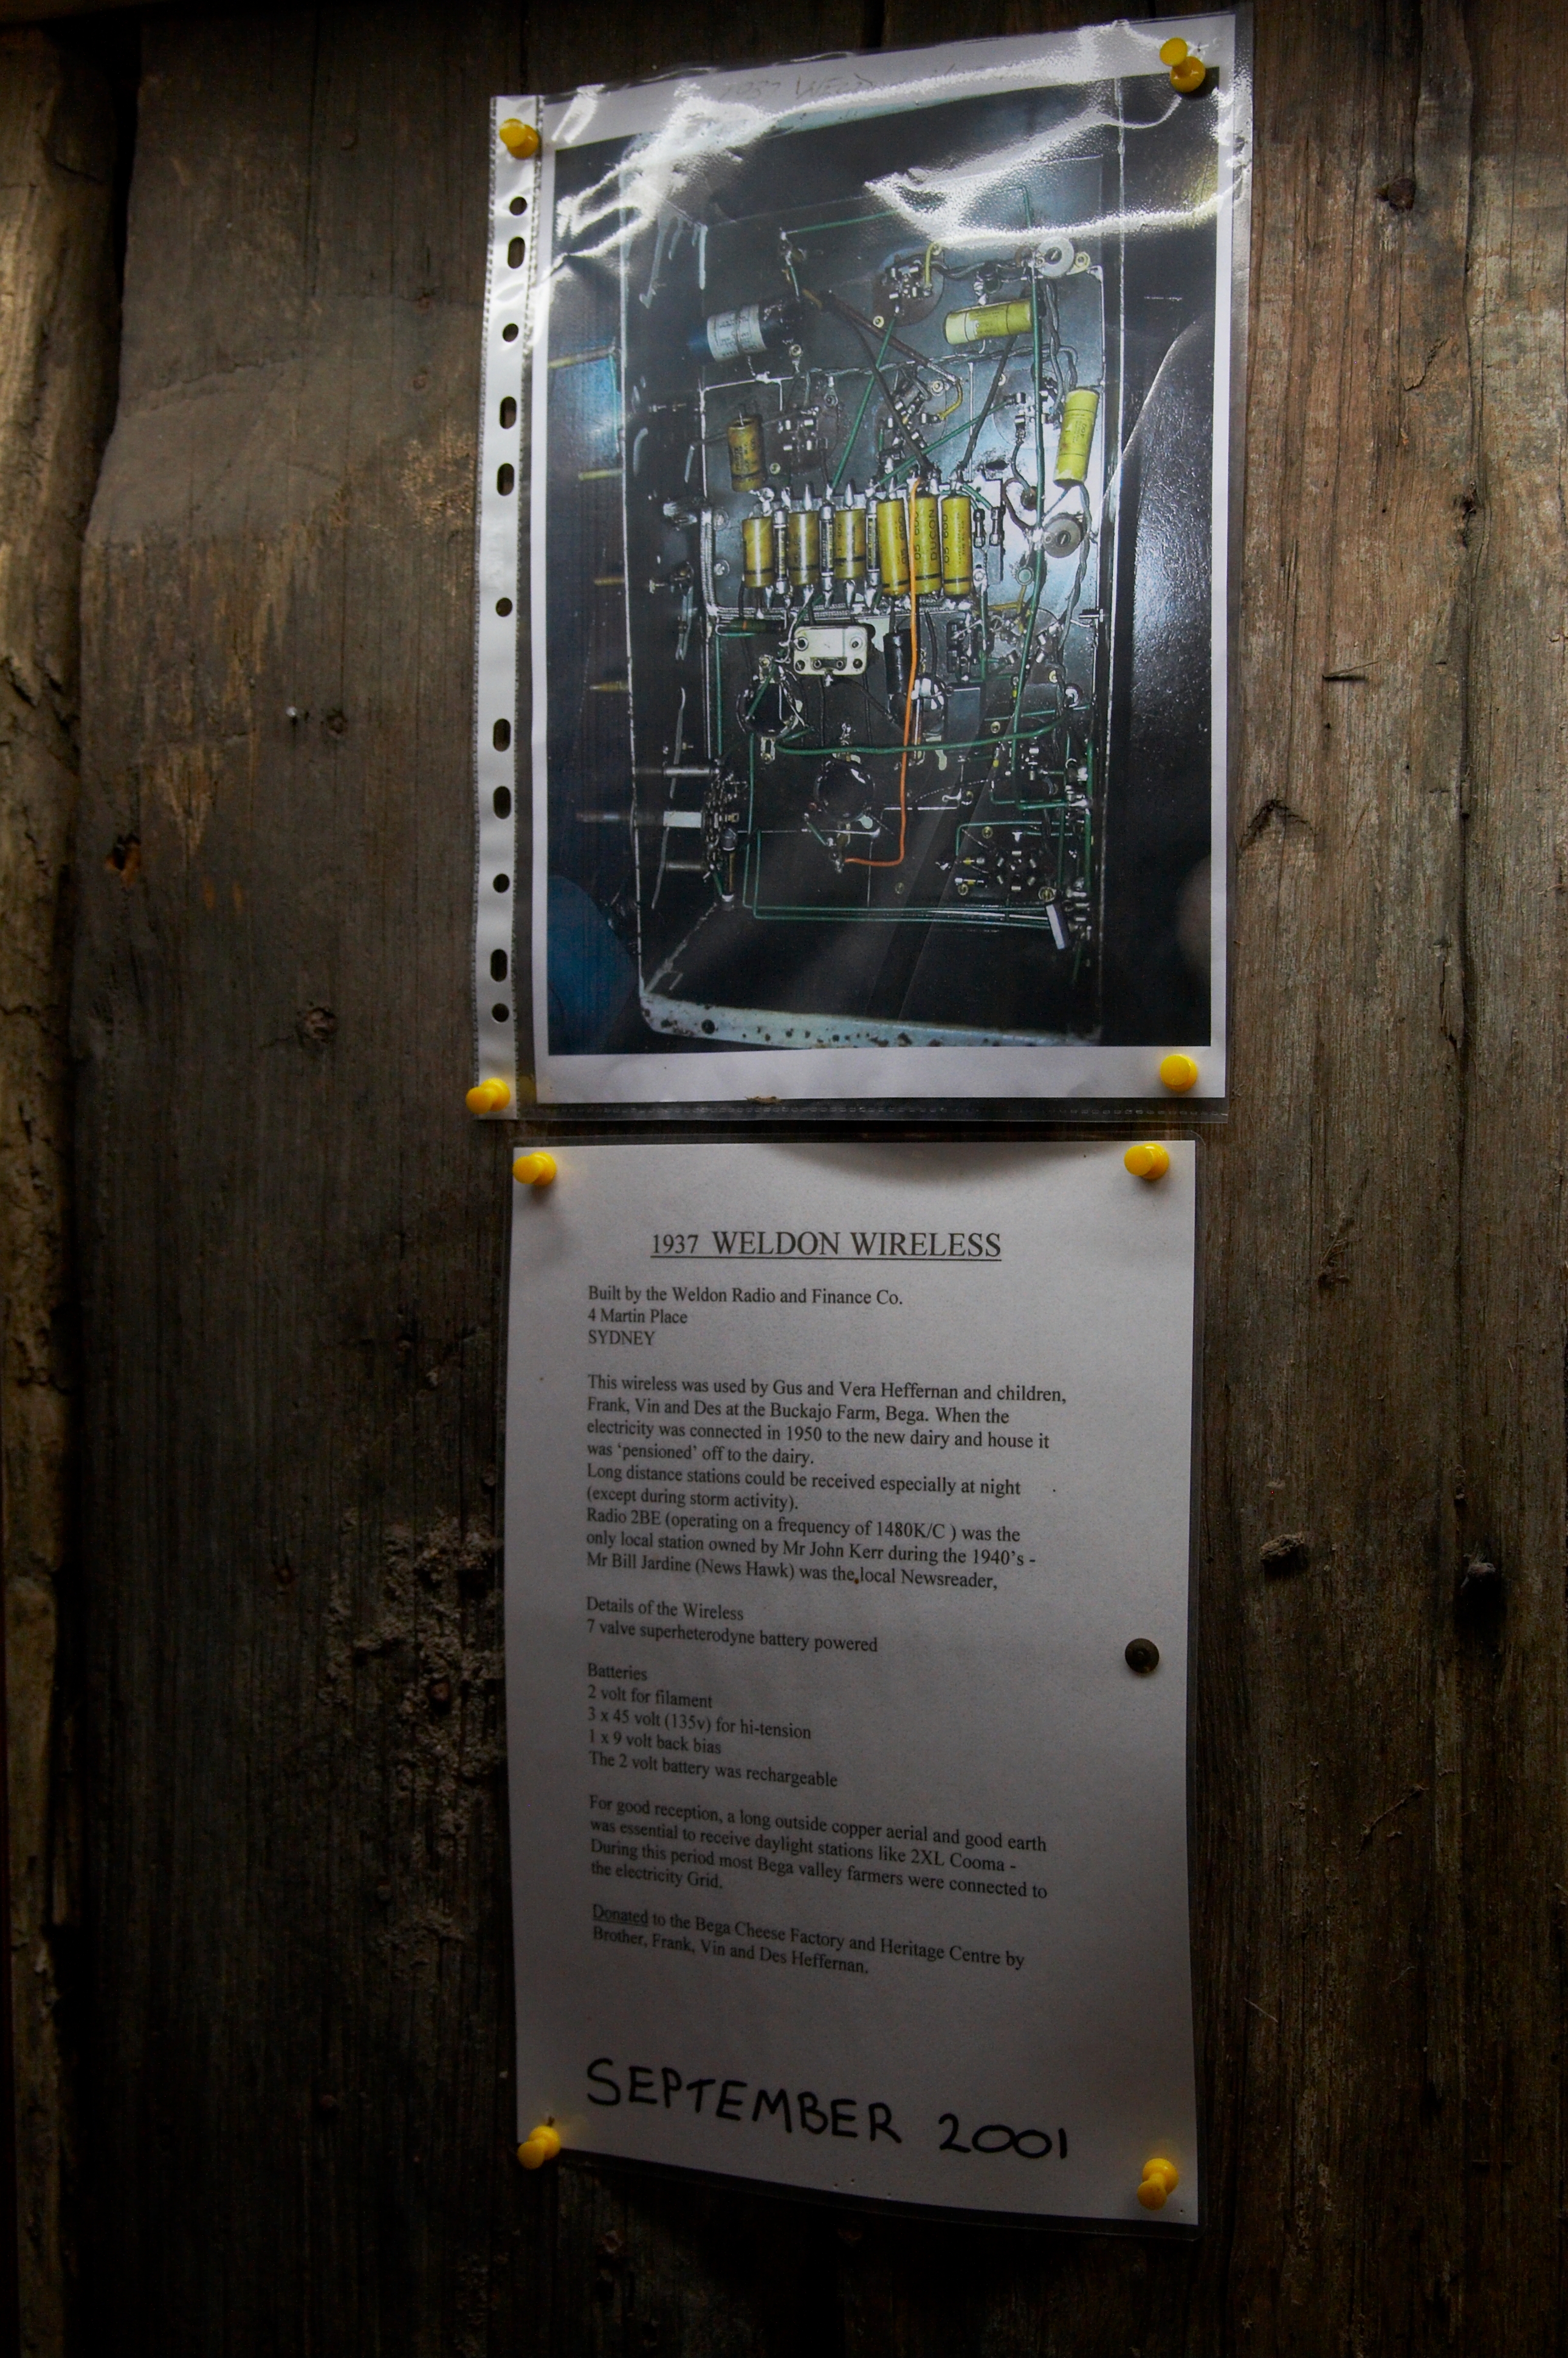 1937 WELDON WIRELESS
Built by the Weldon Radio and Finance Co.
4 Martin Place
SYDNEY
This wireless was used by Gus and Vera Heffernan and children,
Frank, Vin and Des at the Buckajo Farm, Bega. When the
electricity was connected in 1950 to the new dairy and house it
was ‘pensioned’ off to the dairy.
Long distance stations could be received especially at night
(except during storm activity).
Radio 2BE (operating on a frequency of 1480K/C ) was the
only local station owned by Mr John Kerr during the 1940’s -
Mr Bill Jardine (News Hawk) was the local Newsreader,
Details of the Wireless
7 valve superheterodyne battery powered
Batteries
2 volt for filament
3 x 45 volt (135v) for hi-tension
1 x 9 volt back bias
The 2 volt battery was rechargeable
For good reception, a long outside copper aerial and good earth
was essential to receive daylight stations like 2XL Cooma -
During this period most Bega valley farmers were connected to
the electricity Grid.
Donated to the Bega Cheese Factory and Heritage Centre by
Brother, Frank, Vin and Des Heffernan.
SEPTEMBER 2001